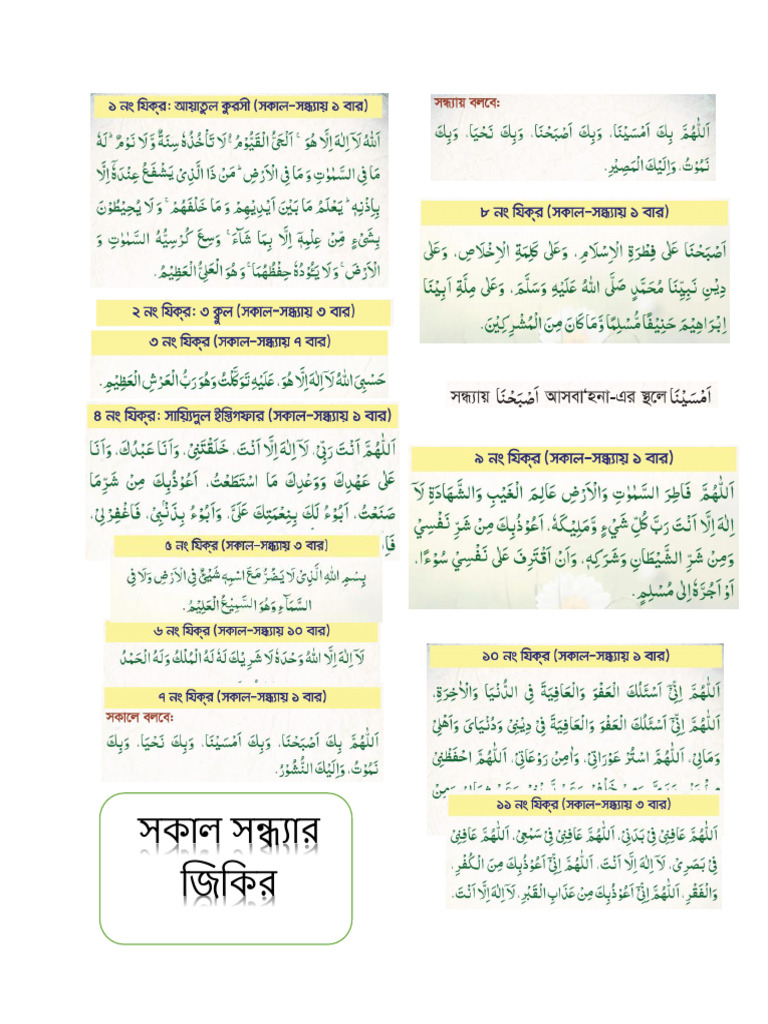 ১ নং যিক্‌র: আয়াতুল কুরসী (সকাল-সন্ধ্যায় ১ বার)
اَللّٰهُ لَآ اِلٰهَ اِلَّا هُوَ ۚ اَلْحَیُّ الْقَیُّوْمُ ۚ لَا تَاْخُذُهٗ سِنَةٌ وَّ لَا نَوْمٌ ؕ لَهٗ
مَا فِی السَّمٰوٰتِ وَ مَا فِی الْاَرْضِ ؕ مَنْ ذَا الَّذِیْ یَشْفَعُ عِنْدَهٗۤ اِلَّا
بِاِذْنِهٖ ؕ یَعْلَمُ مَا بَیْنَ اَیْدِیْهِمْ وَ مَا خَلْفَهُمْ ۚ وَ لَا یُحِیْطُوْنَ
بِشَیْءٍ مِّنْ عِلْمِهٖۤ اِلَّا بِمَا شَآءَ ۚ وَسِعَ كُرْسِیُّهُ السَّمٰوٰتِ وَ
الْاَرْضَ ۚ وَ لَا یَـُٔوْدُهٗ حِفْظُهُمَا ۚ وَ هُوَ الْعَلِیُّ الْعَظِیْمُ.
২ নং যিক্‌র: ৩ ক্বুল (সকাল-সন্ধ্যায় ৩ বার)
৩ নং যিক্‌র (সকাল-সন্ধ্যায় ৭ বার)
حَسْبِیَ اللهُ لَآ اِلٰهَ اِلَّا هُوَ، عَلَیْهِ تَوَكَّلْتُ وَهُوَ رَبُّ الْعَرْشِ الْعَظِیْمِ.
৪ নং যিক্‌র: সায়্যিদুল ইস্তিগফার (সকাল-সন্ধ্যায় ১ বার)
اَللّٰهُمَّ اَنْتَ رَبِّیْ، لَآ اِلٰهَ اِلَّا اَنْتَ، خَلَقْتَنِیْ، وَاَنَا عَبْدُكَ، وَاَنَا
عَلٰی عَهْدِكَ وَوَعْدِكَ مَا اسْتَطَعْتُ، اَعُوْذُبِكَ مِنْ شَرِّمَا
صَنَعْتُ، اَبُوْءُ لَكَ بِنِعْمَتِكَ عَلَیَّ، وَاَبُوْءُ بِذَنْۢبِیْ، فَاغْفِرْلِیْ،
৫ নং যিক্‌র (সকাল-সন্ধ্যায় ৩ বার)
بِسْمِ اللهِ الَّذِیْ لَا یَضُرُّ مَعَ اسْمِهٖ شَیْئٌ فِی الْاَرْضِ وَلَا فِی
السَّمَآءِ وَهُوَ السَّمِیْعُ الْعَلِیْمُ.
৬ নং যিক্‌র (সকাল-সন্ধ্যায় ১০ বার)
لَآ اِلٰهَ اِلَّا اللهُ وَحْدَهٗ لَا شَرِیْكَ لَهٗ لَهُ الْمُلْكُ وَلَهُ الْحَمْدُ
৭ নং যিক্‌র (সকাল-সন্ধ্যায় ১ বার)
সকালে বলবে:
اَللّٰهُمَّ بِكَ اَصْبَحْنَا، وَبِكَ اَمْسَیْنَا، وَبِكَ نَحْیَا، وَبِكَ
نَمُوْتُ، وَاِلَیْكَ النُّشُوْرُ.
সকাল সন্ধ্যার
জিকির
সন্ধ্যায় বলবে:
اَللّٰهُمَّ بِكَ اَمْسَیْنَا، وَبِكَ اَصْبَحْنَا، وَبِكَ نَحْیَا، وَبِكَ
نَمُوْتُ، وَاِلَیْكَ الْمَصِیْرِ.
৮ নং যিক্‌র (সকাল-সন্ধ্যায় ১ বার)
اَصْبَحْنَا عَلٰی فِطْرَةِ الْاِسْلَامِ، وَعَلٰی كَلِمَةِ الْاِخْلَاصِ، وَعَلٰی
دِیْنِ نَبِیِّنَا مُحَمَّدٍ صَلَّی اللهُ عَلَیْهِ وَسَلَّمَ، وَعَلٰی مِلَّةِ اَبِیْنَا
اِبْرَاهِیْمَ حَنِیْفًا مُّسْلِمًا وَّمَا كَانَ مِنَ الْمُشْرِكِیْنَ.
সন্ধ্যায় اَصْبَحْنَا আসবা'হনা-এর স্থলে اَمْسَیْنَا
৯ নং যিক্‌র (সকাল-সন্ধ্যায় ১ বার)
اَللّٰهُمَّ فَاطِرَ السَّمٰوٰتِ وَالْاَرْضِ عَالِمَ الْغَیْبِ وَالشَّهَادَةِ لَآ
اِلٰهَ اِلَّا اَنْتَ رَبَّ كُلِّ شَیْءٍ وَّمَلِیْكَهٗ، اَعُوْذُبِكَ مِنْ شَرِّ نَفْسِیْ
وَمِنْ شَرِّ الشَّیْطَانِ وَشَرَكِهٖ، وَاَنْ اَقْتَرِفَ عَلٰی نَفْسِیْ سُوْءًا،
اَوْ اَجُرَّهٗ اِلٰی مُسْلِمٍ.
১০ নং যিক্‌র (সকাল-সন্ধ্যায় ১ বার)
اَللّٰهُمَّ اِنِّیْٓ اَسْئَلُكَ الْعَفْوَ وَالْعَافِیَةَ فِی الدُّنْیَا وَالْاٰخِرَةِ،
اَللّٰهُمَّ اِنِّیْٓ اَسْئَلُكَ الْعَفْوَ وَالْعَافِیَةَ فِیْ دِیْنِیْ وَدُنْیَایَ وَاَهْلِیْ
وَمَالِیْ، اَللّٰهُمَّ اسْتُرْ عَوْرَاتِیْ، وَاٰمِنْ رَوْعَاتِیْ، اَللّٰهُمَّ احْفَظْنِیْ
১১ নং যিক্‌র (সকাল-সন্ধ্যায় ৩ বার)
اَللّٰهُمَّ عَافِنِیْ فِیْ بَدَنِیْ، اَللّٰهُمَّ عَافِنِیْ فِیْ سَمْعِیْ، اَللّٰهُمَّ عَافِنِیْ
فِیْ بَصَرِیْ، لَآ اِلٰهَ اِلَّا اَنْتَ، اَللّٰهُمَّ اِنِّیْٓ اَعُوْذُبِكَ مِنَ الْكُفْرِ،
وَالْفَقْرِ، اَللّٰهُمَّ اِنِّیْٓ اَعُوْذُبِكَ مِنْ عَذَابِ الْقَبْرِ، لَآ اِلٰهَ اِلَّا اَنْتَ.